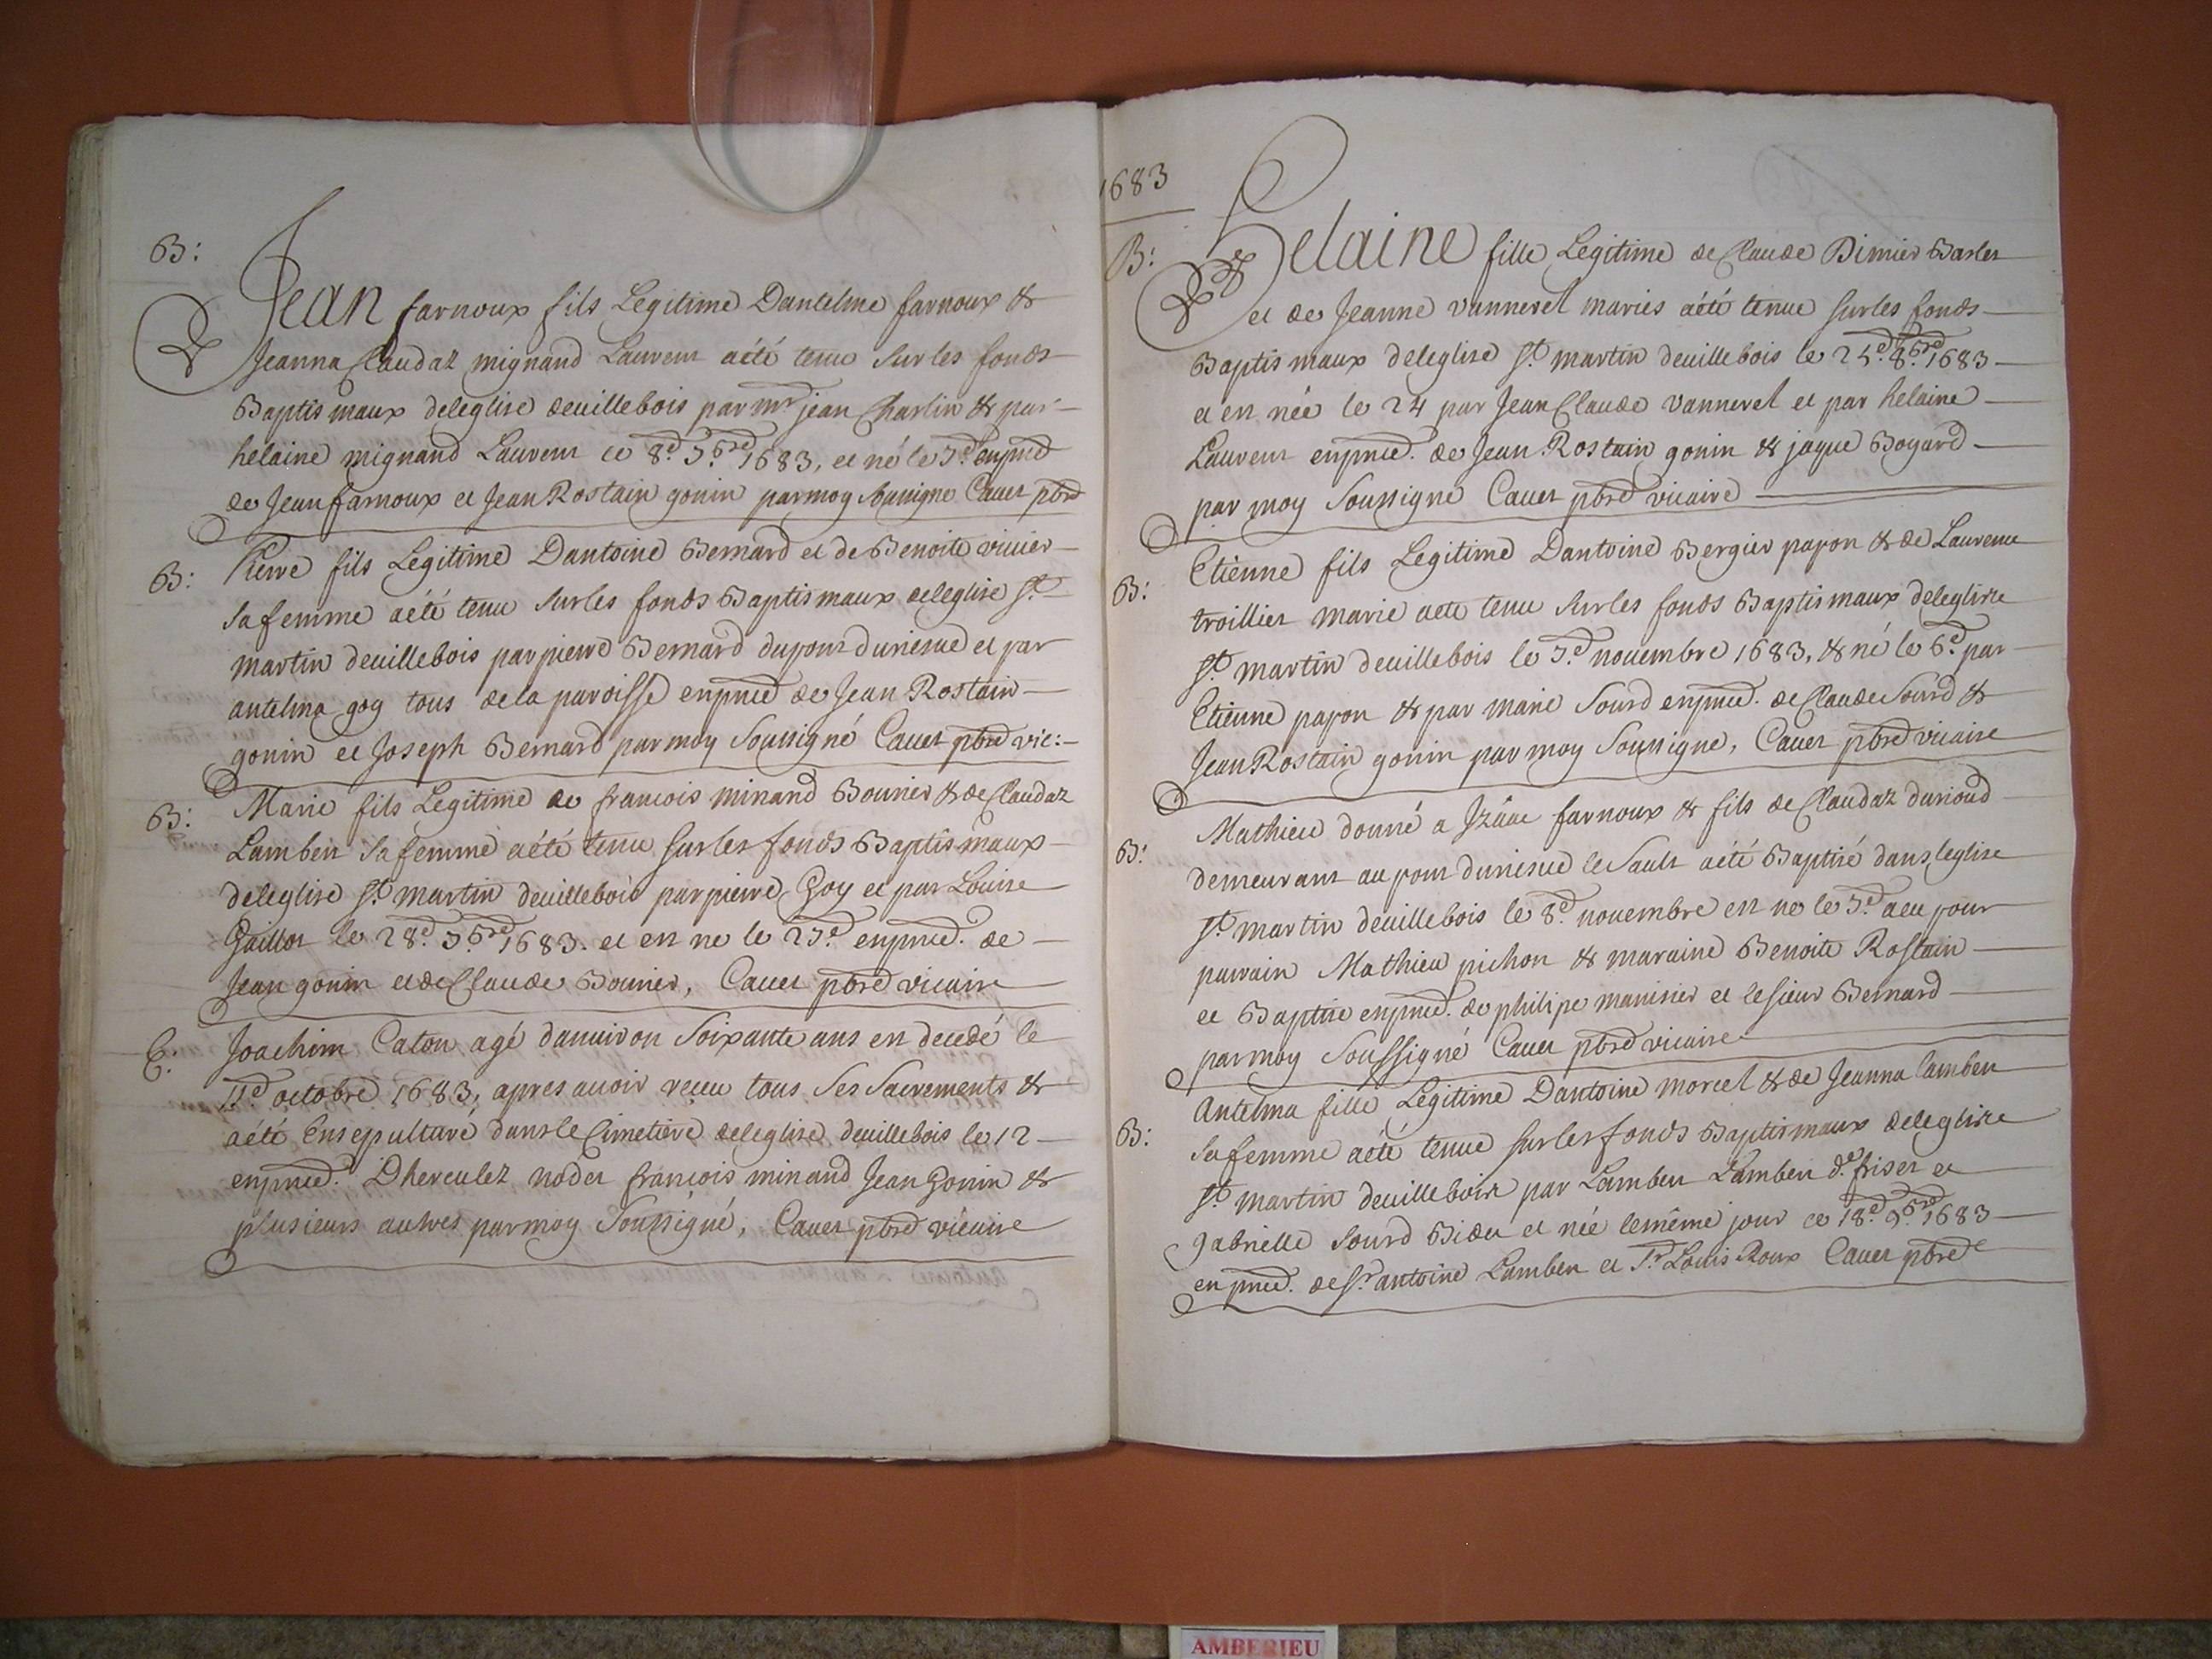 B:
Jean farnoux fils Legitime Dantelme farnoux &
Jeanna Claudaz mignand Laurent aété tenu Sur les fonds
Baptismaux deleglise deuillebois par mr jean Charlin & par
helaine mignand Laurent ce 8e 7bre 1683, et né le 7e enpnce
de Jean farnoux et Jean Rostain gonin parmoy Soussigne Cauet pbre
B:
Pierre fils Legitime Dantoine Bernard et de Benoite viuier
Safemme aété tenu Surles fonds Baptismaux deleglise St
martin deuillebois parpierre Bernard dupont durieue et par
antelma goy tous dela paroisse enpnce de Jean Rostain
gonin et Joseph Bernard parmoy Soussigné Cauet pbre vic:
B:
Marie fils Legitime de francois minand Bounier & de Claudaz
Lambert Safemme aété tenu Surles fonds Baptismaux
deleglise St martin deuillebois parpierre Goy et par Louise
Guillot le 28e 7bre 1683. et est ne le 27e enpnce. de
Jean gonin et de Claude Bounier, Cauet pbre vicaire
E:
Joachim Caton agé danuiron Soixante ans est decedé le
11e octobre 1683, apres auoir reçeu tous Ses Sacrements &
aété Ensepulturé dansle Cimetiere deleglise deuillebois le 12
enpnce. Dherculez nodet francois minand Jean Gonin &
plusieurs autres parmoy Soussigné, Cauet pbre vicaire
1683
B:
Helaine fille Legitime de Claude Dimier Barlet
et de Jeanne vanneret mariés aété tenue Surles fonds
Baptismaux deleglise St martin deuillebois le 25e 8bre 1683
et est née le 24 par Jean Claude vanneret et par helaine
Laurent enpnce. de Jean Rostain gonin & jaque Boyard
par moy Soussigne Cauet pbre vicaire
B:
Etienne fils Legitime Dantoine Bergier papon & de Laurence
troillier marie aete tenu Surles fonds Baptismaux deleglise
St martin deuillebois le 7e nouembre 1683, & né le 6e par
Etienne papon & par marie Sourd enpnce. de Claude Sourd &
Jean Rostain gonin par moy Soussigne, Cauet pbre vicaire
B:
Mathieu donné a Izâac farnoux & fils de Claudaz durioud
demeurant au pont durieue le Sault aété Baptisé dans leglise
St martin deuillebois le 8e nouembre est ne le 7e aeu pour
parrain Mathieu pichon & maraine Benoite Rostain
et Baptise enpnce. de philipe manisier et lesieur Bernard
parmoy Soussigné Cauet pbre vicaire
B:
Antelma fille Legitime Dantoine morcel & de Jeanna lambert
Safemme aété tenue Surles fonds Baptismaux deleglise
St martin deuillebois par Lambert Lambert de friset et
gabrielle Sourd Bidet et née lemême jour ce 18e 9bre 1683
en pnce. de Sr antoine Lambert et Sr Louis Roux Cauet pbre
AMBERIEU